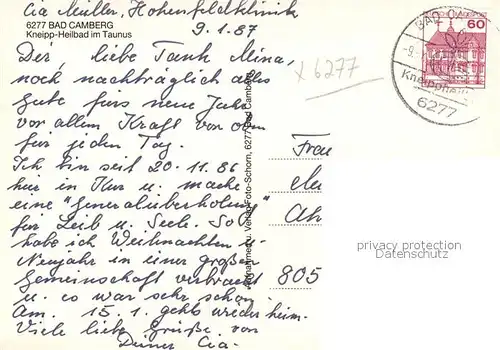 Cia Müller, Hohenfeldklinik
6277 BAD CAMBERG
Kneipp-Heilbad im Taunus
9.1.87
Dir, liebe Tante Mina,
noch nachträglich alles
Gute fürs neue Jahr
vor allem Kraft von oben
für jeden Tag.
Ich bin seit 20.11.86
hier in Kur u. mache
eine "Generalüberholung"
für Leib u. Seele. So
habe ich Weihnachten u.
Neujahr in einer großen
Gemeinschaft verbracht
u. es war sehr schön
Am. 15.1. gehts wieder heim.
Viele liebe Grüße von
Deiner Cia.
x 6277
Verlag Foto-Schorn, 6277 Bad Camberg
60
BAD
Kneipphei
6277
Frau
805
privacy protection
Datenschutz